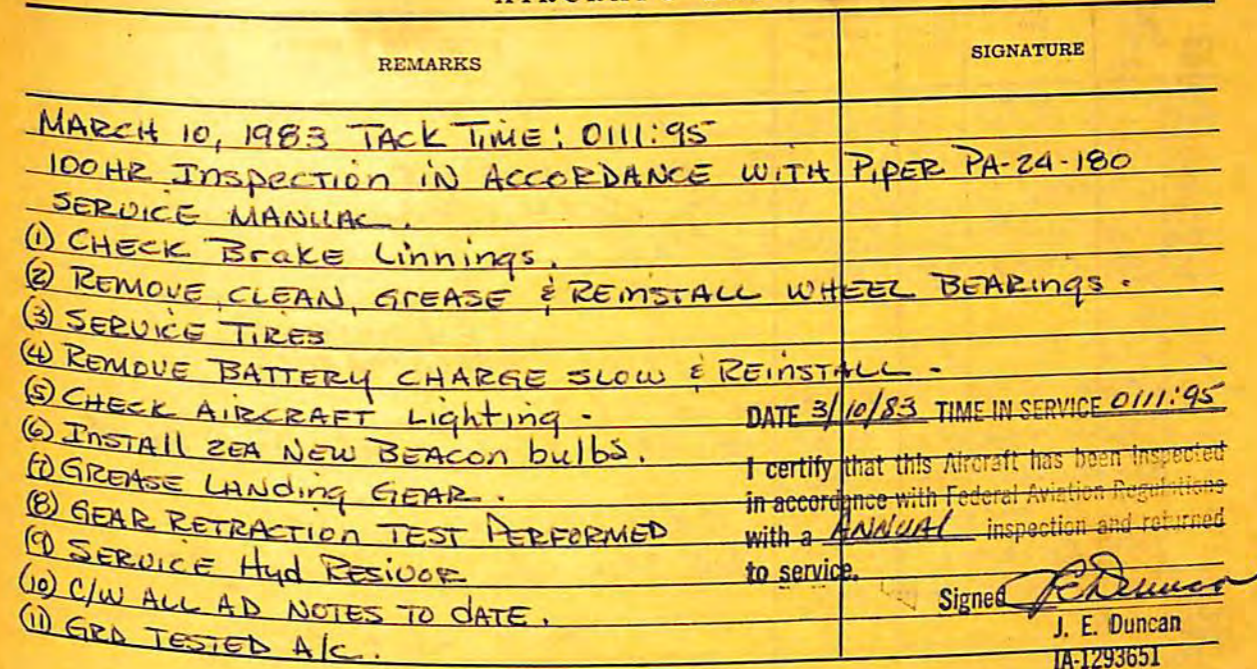 REMARKS
SIGNATURE
MARCH 10, 1983 TACK TIME: 0111:95
100HR Inspection IN ACCORDANCE WITH PIPER PA-24-180
SERVICE MANUAL.
(1) CHECK Brake Linnings.
(2) REMOVE, CLEAN, GREASE & REINSTALL WHEEL BEARINGS.
(3) SERVICE TIRES
(4) REMOVE BATTERY CHARGE SLOW & REINSTALL.
(5) CHECK AIRCRAFT Lighting.
(6) INSTALL 2EA NEW BEACON bulbs.
(7) GREASE LANDING GEAR.
(8) GEAR RETRACTION TEST PERFORMED
(9) SERVICE Hyd RESIVOR
(10) C/W ALL AD NOTES TO DATE.
(11) GRD TESTED A/C.
DATE 3/10/83 TIME IN SERVICE 0111:95
I certify that this Aircraft has been inspected
in accordance with Federal Aviation Regulations
with a ANNUAL inspection and returned
to service.
Signed J E Duncan
J. E. Duncan
IA-1293651